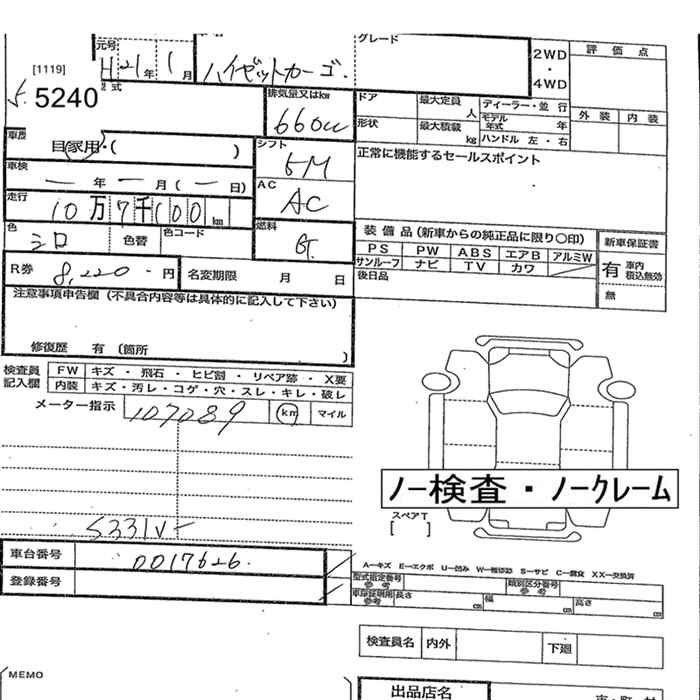 元号 グレード
H 21年 1月 ハイゼットカーゴ. 2WD・4WD 評価点
[1119]
5240 型式 排気量又はkw 660cc ドア 最大定員 人 ディーラー・並行 外装 内装
形状 最大積載 kg モデル年式 年
ハンドル 左・右
車歴 自家用・( ) シフト 5M 正常に機能するセールスポイント
車検 ー年ー月(ー日) AC AC
走行 10万7千100km
色 シロ 色替 色コード 燃料 G. 装備品(新車からの純正品に限り〇印) 新車保証書
PS PW ABS エアB アルミW 有 車内積込無効
サンルーフ ナビ TV カワ
R券 8,220-円 名変期限 月 日 後日品 無
注意事項申告欄(不具合内容等は具体的に記入して下さい)
修復歴 有 (箇所 )
検査員記入欄 FW キズ・飛石・ヒビ割・リペア跡・X要
内装 キズ・汚レ・コゲ・穴・スレ・キレ・破レ
メーター指示 107089 km マイル
ノー検査・ノークレーム
スペアT
[ ]
S331V-
車台番号 0017626.
A―キズ E―エクボ U―凹み W―補修跡 S―サビ C―腐食 XX―交換済
登録番号 型式指定番号 参考 類別区分番号 参考
車庫証明用 参考 長さ cm 幅 cm 高さ cm
検査員名 内外 下廻
MEMO
出品店名